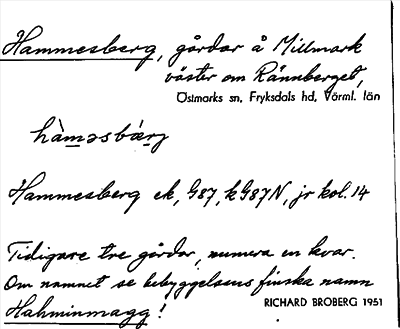 Hammesberg, gårdar å Millmark
väster om Rännberget,
Östmarks sn, Fryksdals hd, Värml. län
hàməsbæ̀rj
Hammesberg ek, 987, k987N, jr kol. 14
Tidigare tre gårdar, numera en kvar.
Om namnet se bebyggelsens finska namn
Hahminmagg!
RICHARD BROBERG 1951